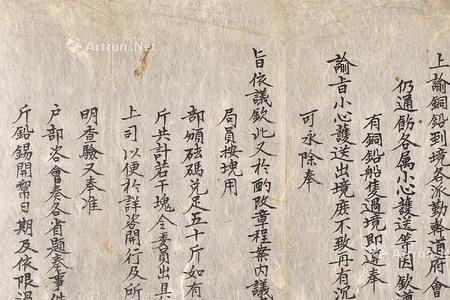 上諭銅鉛到境各派勤幹道府會
仍通飭各属小心護送等因欽遵
有銅鉛船隻過境即遵奉
諭旨小心護送出境庶不致再有沉
可永除奉
旨依議欽此又於酌改章程案内議
局員按塊用
部頒砝碼兑足五十斤如有
斤共計若干塊令委員出具
上司以便於詳咨開行及所
明查驗又奉准
户部咨會奏各省題奏事件
斤鉛錫開幫日期及依限過
Artron.Net